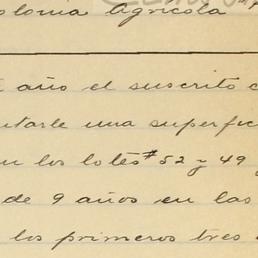 olonia Agrícola
año el suscrito c
utarle una superfic
n los lotes # 52 y 49
de 9 años en las
los primeros tres